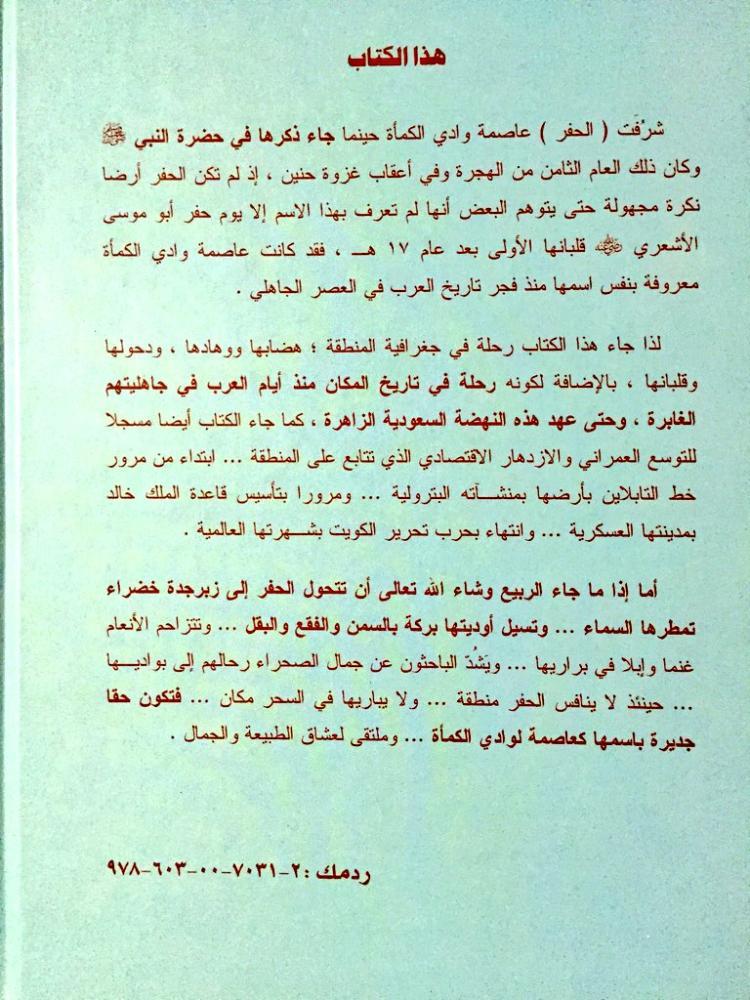 هذا الكتاب
شرُفَت ( الحفر ) عاصمة وادي الكمأة حينما جاء ذكرها في حضرة النبي ﷺ
وكان ذلك العام الثامن من الهجرة وفي أعقاب غزوة حنين ، إذ لم تكن الحفر أرضا
نكرة مجهولة حتى يتوهم البعض أنها لم تعرف بهذا الاسم إلا يوم حفر أبو موسى
الأشعري قلبانها الأولى بعد عام ١٧ هـ ، فقد كانت عاصمة وادي الكمأة
معروفة بنفس اسمها منذ فجر تاريخ العرب في العصر الجاهلي .
لذا جاء هذا الكتاب رحلة في جغرافية المنطقة ؛ هضابها ووهادها ، ودحولها
وقلبانها ، بالإضافة لكونه رحلة في تاريخ المكان منذ أيام العرب في جاهليتهم
الغابرة ، وحتى عهد هذه النهضة السعودية الزاهرة ، كما جاء الكتاب أيضا مسجلا
للتوسع العمراني والازدهار الاقتصادي الذي تتابع على المنطقة ... ابتداء من مرور
خط التابلاين بأرضها بمنشآته البترولية ... ومرورا بتأسيس قاعدة الملك خالد
بمدينتها العسكرية ... وانتهاء بحرب تحرير الكويت بشهرتها العالمية .
أما إذا ما جاء الربيع وشاء الله تعالى أن تتحول الحفر إلى زبرجدة خضراء
تمطرها السماء ... وتسيل أوديتها بركة بالسمن والفقع والبقل ... وتتزاحم الأنعام
غنما وإبلا في براريها ... ويَشُدّ الباحثون عن جمال الصحراء رحالهم إلى بواديها
... حينئذ لا ينافس الحفر منطقة ... ولا يباريها في السحر مكان ... فتكون حقا
جديرة باسمها كعاصمة لوادي الكمأة ... وملتقى لعشاق الطبيعة والجمال .
ردمك : ٢-٧٠٣١-٠٠-٦٠٣-٩٧٨